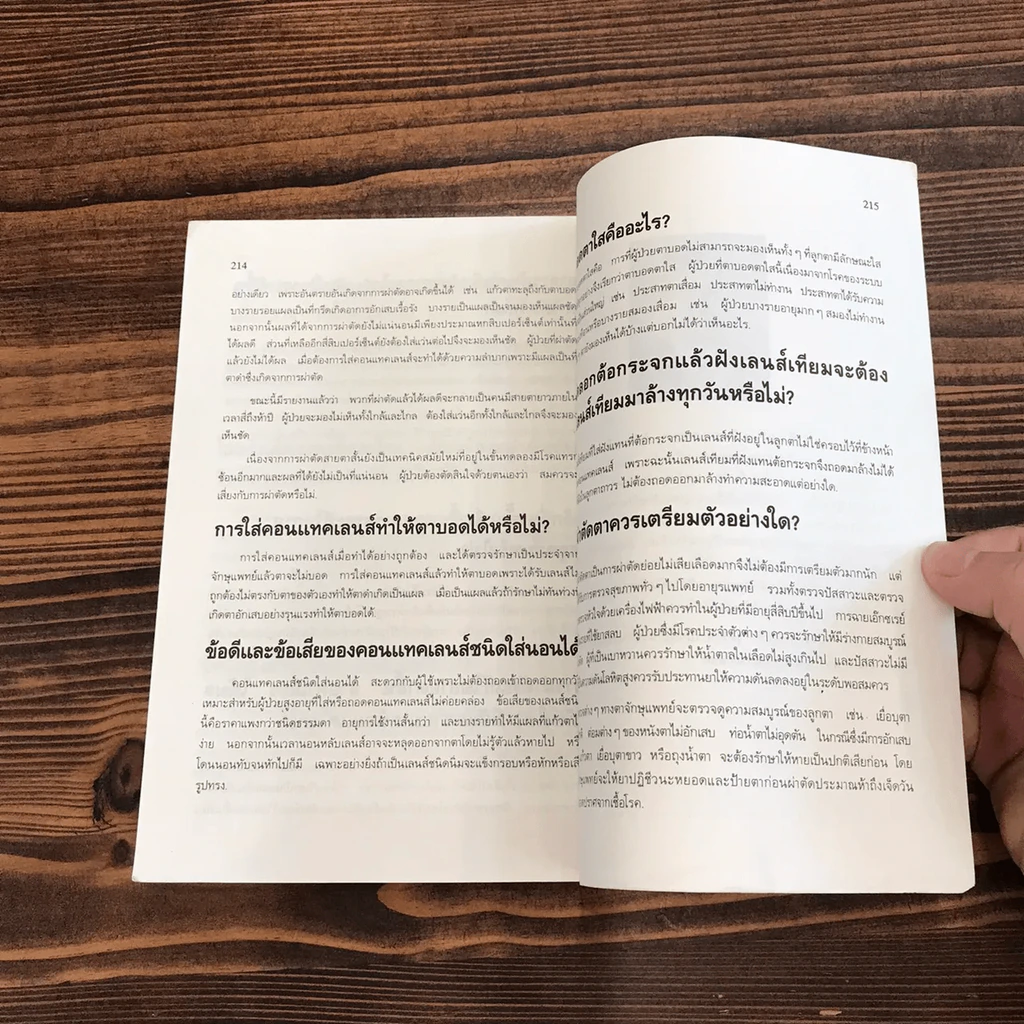 214
อย่างเดียว เพราะอันตรายอันเกิดจากการผ่าตัดอาจเกิดขึ้นได้ เช่น แก้วตาทะลุถึงกับตาบอด
บางรายรอยแผลเป็นที่กรีดเกิดอาการอักเสบเรื้อรัง บางรายเป็นแผลเป็นจนมองเห็นแผลชัด
นอกจากนั้นผลที่ได้จากการผ่าตัดยังไม่แน่นอนมีเพียงประมาณหกสิบเปอร์เซ็นต์เท่านั้นที่
ได้ผลดี ส่วนที่เหลืออีกสี่สิบเปอร์เซ็นต์ยังต้องใส่แว่นต่อไปจึงจะมองเห็นชัด ผู้ป่วยที่ผ่าตัด
แล้วยังไม่ได้ผล เมื่อต้องการใส่คอนแทคเลนส์จะทำได้ด้วยความลำบากเพราะมีแผลเป็นที่
ตาดำซึ่งเกิดจากการผ่าตัด
ขณะนี้มีรายงานแล้วว่า พวกที่ผ่าตัดแล้วได้ผลดีจะกลายเป็นคนมีสายตายาวภายใน
เวลาสี่ถึงห้าปี ผู้ป่วยจะมองไม่เห็นทั้งใกล้และไกล ต้องใส่แว่นอีกทั้งใกล้และไกลจึงจะมอง
เห็นชัด
เนื่องจากการผ่าตัดสายตาสั้นยังเป็นเทคนิคสมัยใหม่ที่อยู่ในขั้นทดลองมีโรคแทรก
ซ้อนอีกมากและผลที่ได้ยังไม่เป็นที่แน่นอน ผู้ป่วยต้องตัดสินใจด้วยตนเองว่า สมควรจะ
เสี่ยงกับการผ่าตัดหรือไม่.
การใส่คอนแทคเลนส์ทำให้ตาบอดได้หรือไม่?
การใส่คอนแทคเลนส์เมื่อทำได้อย่างถูกต้อง และได้ตรวจรักษาเป็นประจำจาก
จักษุแพทย์แล้วตาจะไม่บอด การใส่คอนแทคเลนส์แล้วทำให้ตาบอดเพราะได้รับเลนส์ไม่
ถูกต้องไม่ตรงกับตาของตัวเองทำให้ตาดำเกิดเป็นแผล เมื่อเป็นแผลแล้วถ้ารักษาไม่ทันท่วงที
เกิดตาอักเสบอย่างรุนแรงทำให้ตาบอดได้.
ข้อดีและข้อเสียของคอนแทคเลนส์ชนิดใส่นอนได้
คอนแทคเลนส์ชนิดใส่นอนได้ สะดวกกับผู้ใช้เพราะไม่ต้องถอดเข้าถอดออกทุกวัน
เหมาะสำหรับผู้ป่วยสูงอายุที่ใส่หรือถอดคอนแทคเลนส์ไม่ค่อยคล่อง ข้อเสียของเลนส์ชนิด
นี้คือราคาแพงกว่าชนิดธรรมดา อายุการใช้งานสั้นกว่า และบางรายทำให้มีแผลที่แก้วตาได้
ง่าย นอกจากนั้นเวลานอนหลับเลนส์อาจจะหลุดออกจากตาโดยไม่รู้ตัวแล้วหายไป
โดนนอนทับจนหักไปก็มี เฉพาะอย่างยิ่งถ้าเป็นเลนส์ชนิดนิ่มจะแข็งกรอบหรือหักหรือเสีย
รูปทรง.
215
ตาใสคืออะไร?
คือ การที่ผู้ป่วยตาบอดไม่สามารถจะมองเห็นทั้ง ๆ ที่ลูกตามีลักษณะใส
จึงเรียกว่าตาบอดตาใส ผู้ป่วยที่ตาบอดตาใสนี้เนื่องมาจากโรคของระบบ
ใหญ่ เช่น ประสาทตาเสื่อม ประสาทตาไม่ทำงาน ประสาทตาได้รับความ
หรือบางรายสมองเสื่อม เช่น ผู้ป่วยบางรายอายุมาก ๆ สมองไม่ทำงาน
มองเห็นได้บ้างแต่บอกไม่ได้ว่าเห็นอะไร.
ลอกต้อกระจกแล้วฝังเลนส์เทียมจะต้อง
นส์เทียมมาล้างทุกวันหรือไม่?
ที่ใส่ฝังแทนที่ต้อกระจกเป็นเลนส์ที่ฝังอยู่ในลูกตาไม่ใช่ครอบไว้ที่ข้างหน้า
แทคเลนส์ เพราะฉะนั้นเลนส์เทียมที่ฝังแทนต้อกระจกจึงถอดมาล้างไม่ได้
ในลูกตาถาวร ไม่ต้องถอดออกมาล้างทำความสะอาดแต่อย่างใด.
ตัดตาควรเตรียมตัวอย่างใด?
ตาเป็นการผ่าตัดย่อยไม่เสียเลือดมากจึงไม่ต้องมีการเตรียมตัวมากนัก แต่
การตรวจสุขภาพทั่ว ๆ ไปโดยอายุรแพทย์ รวมทั้งตรวจปัสสาวะและตรวจ
หัวใจด้วยเครื่องไฟฟ้าควรทำในผู้ป่วยที่มีอายุสี่สิบปีขึ้นไป การฉายเอ๊กซเรย์
ที่ใช้ยาสลบ ผู้ป่วยซึ่งมีโรคประจำตัวต่าง ๆ ควรจะรักษาให้มีร่างกายสมบูรณ์
ผู้ที่เป็นเบาหวานควรรักษาให้น้ำตาลในเลือดไม่สูงเกินไป และปัสสาวะไม่มี
ความดันโลหิตสูงควรรับประทานยาให้ความดันลดลงอยู่ในระดับพอสมควร
ต่าง ๆ ทางตาจักษุแพทย์จะตรวจดูความสมบูรณ์ของลูกตา เช่น เยื่อบุตา
ต่อมต่าง ๆ ของหนังตาไม่อักเสบ ท่อน้ำตาไม่อุดตัน ในกรณีซึ่งมีการอักเสบ
เยื่อบุตาขาว หรือถุงน้ำตา จะต้องรักษาให้หายเป็นปกติเสียก่อน โดย
แพทย์จะให้ยาปฏิชีวนะหยอดและป้ายตาก่อนผ่าตัดประมาณห้าถึงเจ็ดวัน
ปราศจากเชื้อโรค.